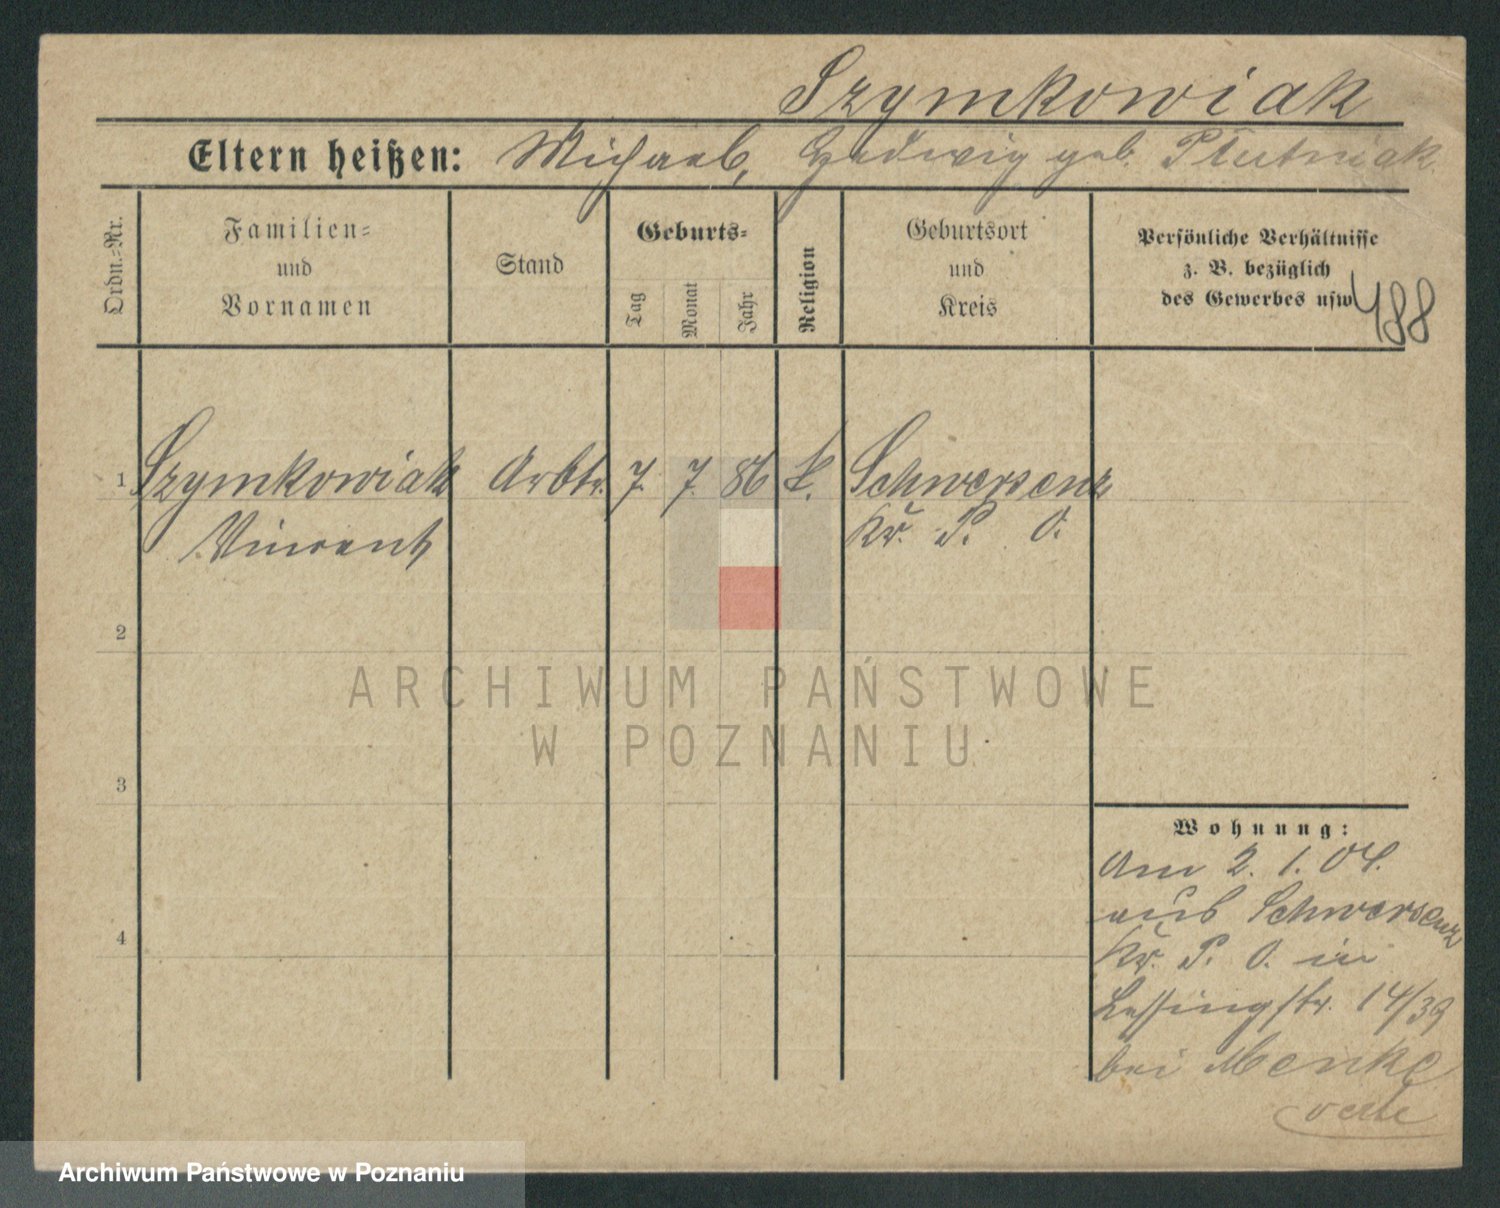 Szymkowiak
Eltern heißen: Michael, Hedwig geb. Plutniak
Ordn.-Nr.
Familien-
und
Vornamen
Stand
Geburts-
Tag
Monat
Jahr
Religion
Geburtsort
und
Kreis
Persönliche Verhältnisse
z. B. bezüglich
des Gewerbes usw.
488
1 Szymkowiak Arbtr. 7. 7. 86 k. Schwersenz
Vincent Kr. P. O.
2
3
4
Wohnung:
Am 2. 1. 04.
aus Schwersenz
Kr. P. O. in
Lessingstr. 14/39
bei Menke
ARCHIWUM PAŃSTWOWE
W POZNANIU
Archiwum Państwowe w Poznaniu